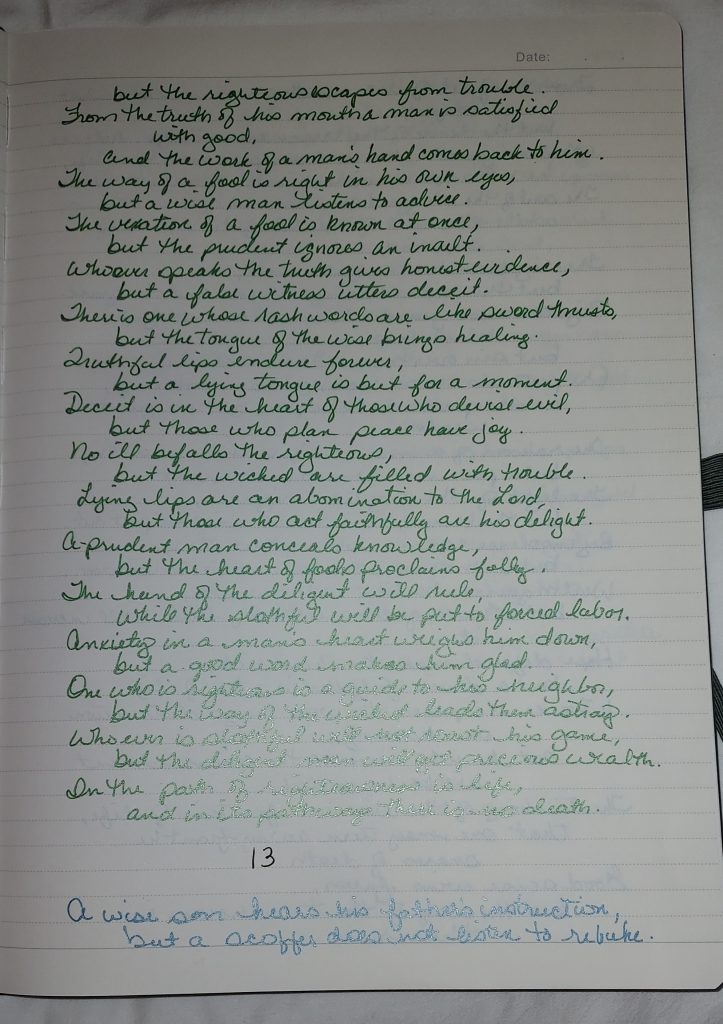 Date:
but the righteous escapes from trouble.
From the truth of his mouth a man is satisfied
with good,
and the work of a man's hand comes back to him.
The way of a fool is right in his own eyes,
but a wise man listens to advice.
The vexation of a fool is known at once,
but the prudent ignores an insult.
Whoever speaks the truth gives honest evidence,
but a false witness utters deceit.
There is one whose rash words are like sword thrusts,
but the tongue of the wise brings healing.
Truthful lips endure forever,
but a lying tongue is but for a moment.
Deceit is in the heart of those who devise evil,
but those who plan peace have joy.
No ill befalls the righteous,
but the wicked are filled with trouble.
Lying lips are an abomination to the Lord,
but those who act faithfully are his delight.
A prudent man conceals knowledge,
but the heart of fools proclaims folly.
The hand of the diligent will rule,
while the slothful will be put to forced labor.
Anxiety in a man's heart weighs him down,
but a good word makes him glad.
One who is righteous is a guide to his neighbor,
but the way of the wicked leads them astray.
Whoever is slothful will not roast his game,
but the diligent man will get precious wealth.
In the path of righteousness is life,
and in its pathway there is no death.
13
A wise son hears his father's instruction,
but a scoffer does not listen to rebuke.